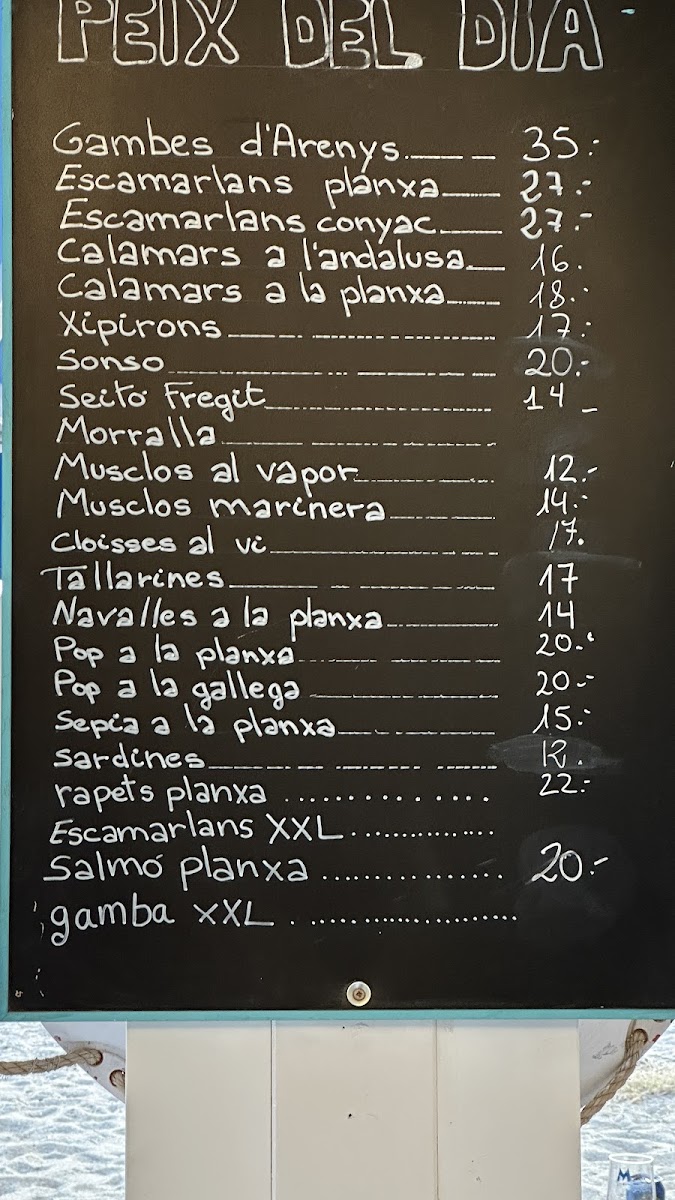 PEIX DEL DIA
Gambes d'Arenys 35.-
Escamarlans planxa 27.-
Escamarlans conyac 27.-
Calamars a l'andalusa 16.
Calamars a la planxa 18.-
Xipirons 17.-
Sonso 20.-
Seitó Fregit 14 -
Morralla
Musclos al vapor 12.-
Musclos marinera 14.-
Cloisses al vi 17.
Tallarines 17
Navalles a la planxa 14
Pop a la planxa 20.-
Pop a la gallega 20.-
Sepia a la planxa 15.-
sardines 12.
rapets planxa 22.-
Escamarlans XXL
Salmó planxa 20.-
gamba XXL
M